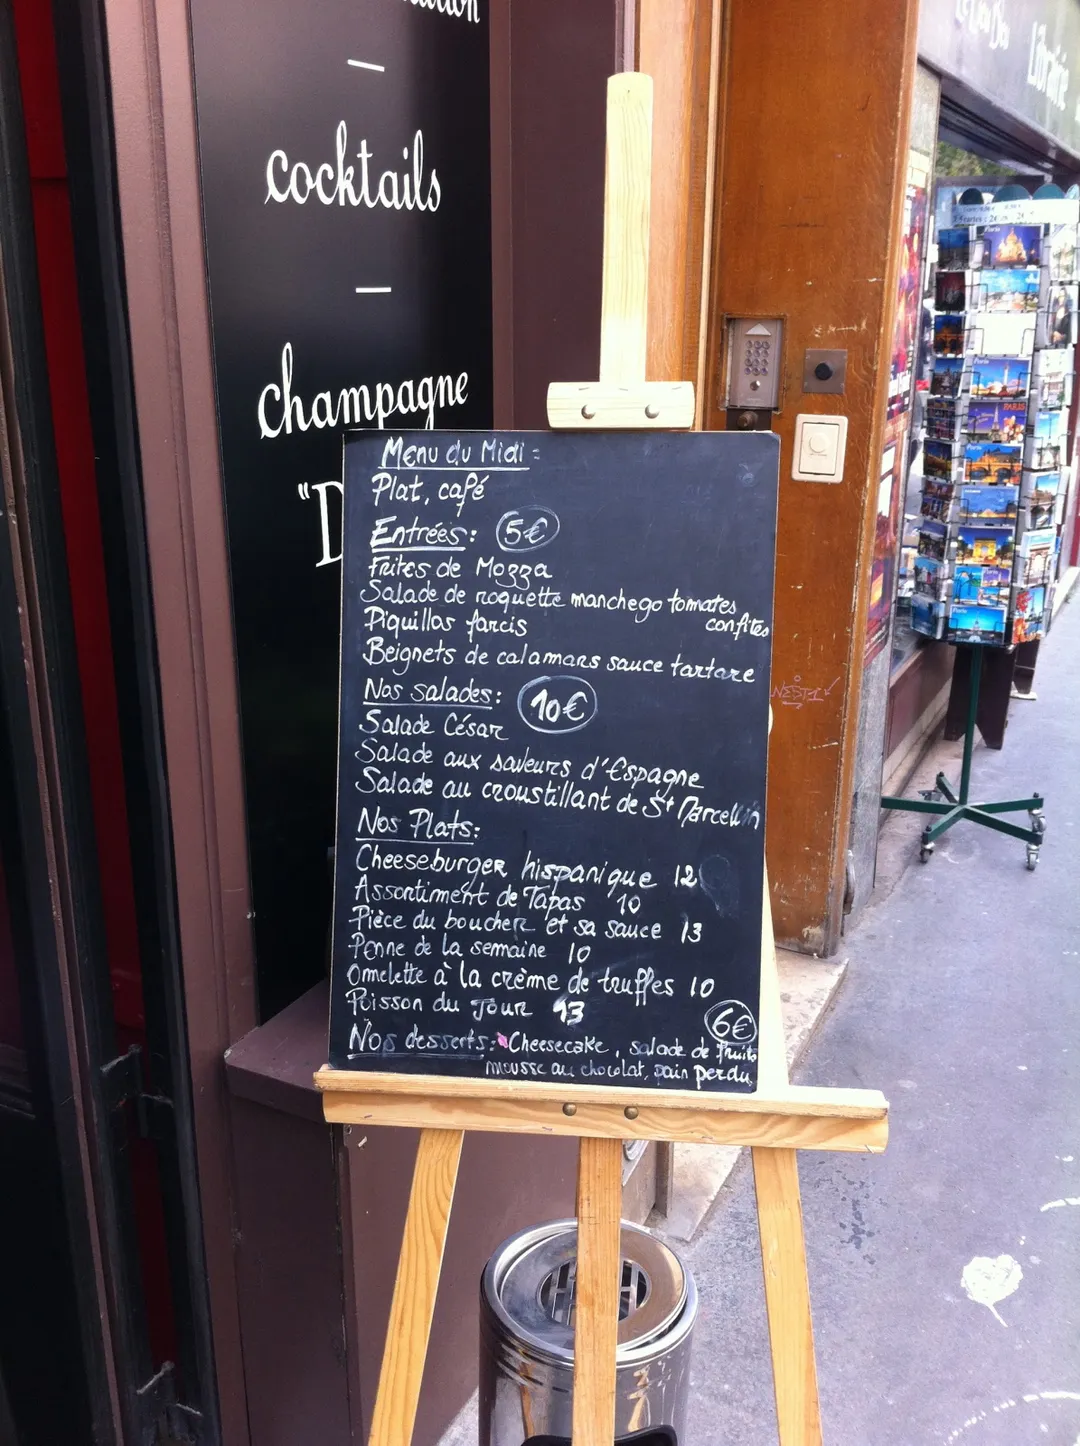 cocktails
champagne
"D
Menu du Midi :
Plat, café
Entrées: 5€
Frites de Mozza
Salade de roquette manchego tomates
confites
Piquillos farcis
Beignets de calamars sauce tartare
Nos salades: 10€
Salade César
Salade aux saveurs d'Espagne
Salade au croustillant de St Marcellin
Nos Plats:
Cheeseburger hispanique 12
Assortiment de Tapas 10
Pièce du boucher et sa sauce 13
Penne de la semaine 10
Omelette à la crème de truffes 10
Poisson du Jour 13
6€
Nos desserts: Cheesecake, salade de fruits
mousse au chocolat, pain perdu
Librairie
Paris
PARIS